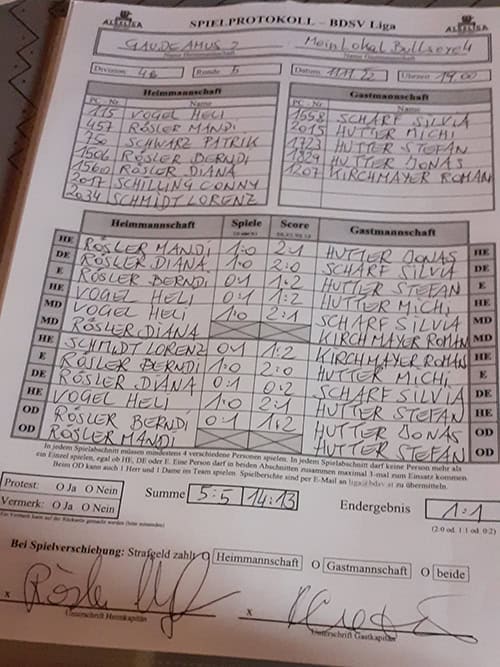 SPIELPROTOKOLL – BDSV Liga
GAUDEAMUS 2 MeinLokal Bullseye 4
Name Heimmannschaft Name Gastmannschaft
Division: 4b Runde 5 Datum 11.11.22 Uhrzeit 19:00
Heimmannschaft Gastmannschaft
PC.-Nr. Name PC.-Nr. Name
115 VOGEL HELI 1558 SCHARF SILVIA
457 RÖSLER MANDI 2015 HUTTER MICHI
750 SCHWARZ PATRIK 1723 HUTTER STEFAN
1506 RÖSLER BERNDI 1829 HUTTER JONAS
1560 RÖSLER DIANA 1207 KIRCHMAYER ROMAN
2017 SCHILLING CONNY
2034 SCHMIDT LORENZ
Heimmannschaft Spiele Score Gastmannschaft
HE RÖSLER MANDI 1:0 2:1 HUTTER JONAS HE
DE RÖSLER DIANA 1:0 2:0 SCHARF SILVIA DE
E RÖSLER BERNDI 0:1 1:2 HUTTER STEFAN E
HE VOGEL HELI 0:1 1:2 HUTTER MICHI HE
MD VOGEL HELI 1:0 2:1 SCHARF SILVIA MD
MD RÖSLER DIANA KIRCHMAYER ROMAN MD
HE SCHMIDT LORENZ 0:1 1:2 KIRCHMAYER ROMAN HE
E RÖSLER BERNDI 1:0 2:0 HUTTER MICHI E
DE RÖSLER DIANA 0:1 0:2 SCHARF SILVIA DE
HE VOGEL HELI 1:0 2:1 HUTTER STEFAN HE
OD RÖSLER BERNDI 0:1 1:2 HUTTER JONAS OD
OD RÖSLER MANDI HUTTER STEFAN OD
In jedem Spielabschnitt müssen mindestens 4 verschiedene Personen spielen. In jedem Spielabschnitt darf keine Person mehr als
ein Einzel spielen, egal ob HE, DE oder E. Eine Person darf in beiden Abschnitten zusammen maximal 3-mal zum Einsatz kommen.
Beim OD kann auch 1 Herr und 1 Dame im Team spielen. Spielberichte sind per E-Mail an liga@bdsv.at zu übermitteln.
Protest: O Ja O Nein Summe 5:5 14:13 Endergebnis 1:1
Vermerk: O Ja O Nein (2:0 od. 1:1 od. 0:2)
Ein Vermerk kann auf der Rückseite gemacht werden (bitte ankreuzen)
Bei Spielverschiebung: Strafgeld zahlt O Heimmannschaft O Gastmannschaft O beide
x x
Unterschrift Heimkapitän Unterschrift Gastkapitän